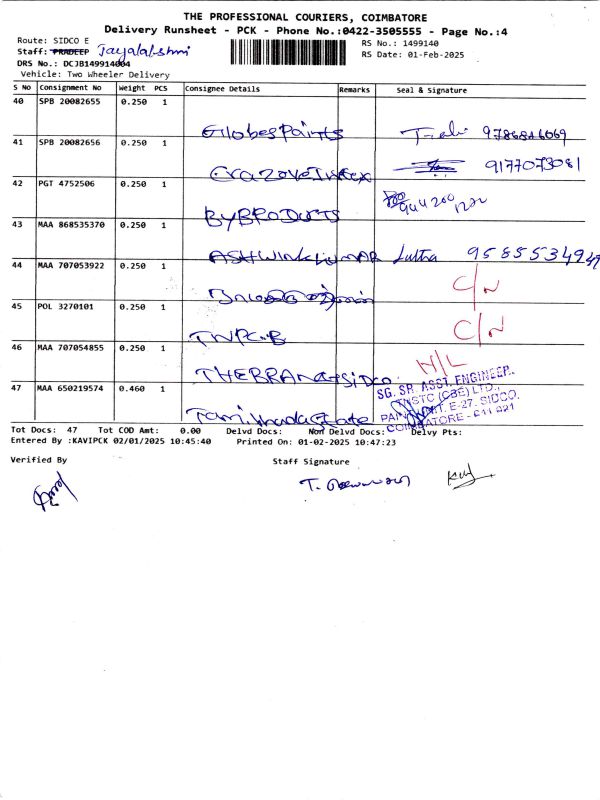 THE PROFESSIONAL COURIERS, COIMBATORE
Delivery Runsheet - PCK - Phone No.:0422-3505555 - Page No.:4
Route: SIDCO E
RS No.: 1499140
Staff: PRADEEP Jayalakshmi
RS Date: 01-Feb-2025
DRS No.: DCJB149914004
Vehicle: Two Wheeler Delivery
S No Consignment No Weight PCS Consignee Details Remarks Seal & Signature
40 SPB 20082655 0.250 1
Globes Paints 9786816069
41 SPB 20082656 0.250 1
9177073081
42 PGT 4752506 0.250 1
BYBRODUCTS 944200 1220
43 MAA 868535370 0.250 1
ASHWINKUMAR Lutha 9585534949
44 MAA 707053922 0.250 1
C/N
45 POL 3270101 0.250 1
TNPCB C/N
46 MAA 707054855 0.250 1
THEBRANCH SIDCO N/L
47 MAA 650219574 0.460 1
Tamilnadu State
SG. SR. ASST. ENGINEER.
TNSTC (CBE) LTD.,
E-27, SIDCO.
COIMBATORE - 641 021
Tot Docs: 47 Tot COD Amt: 0.00 Delvd Docs: Non Delvd Docs: Delvy Pts:
Entered By :KAVIPCK 02/01/2025 10:45:40 Printed On: 01-02-2025 10:47:23
Verified By Staff Signature